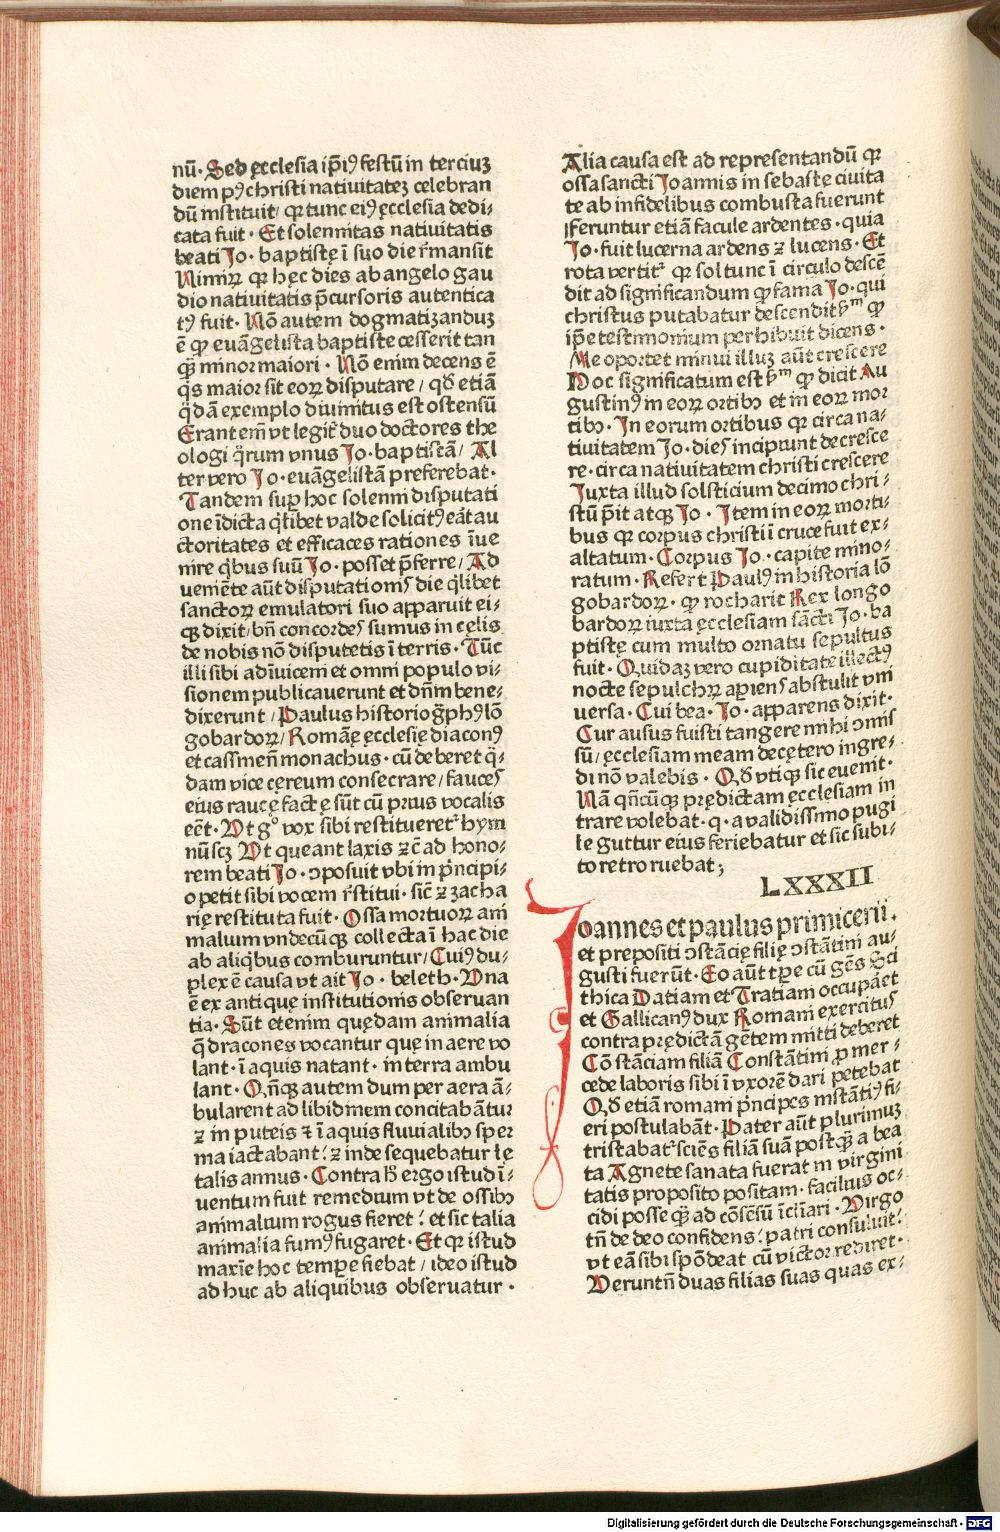 nū. Sed ęcclesia ip̄iꝰ festū in terciuꝫ
diem pꝰ christi nativitateꝫ celebran
dū instituit / qꝛ tunc eiꝰ ęcclesia dedi-
cata fuit. Et solennitas nativitatis
beati Jo. baptistę ī suo die r̄mansit
Nimiꝝ qꝛ hęc dies ab angelo gau
dio nativitatis p̄cursoris autentica
tꝰ fuit. Nō autem dogmatizanduꝫ
ē qꝙ evāgelista baptiste cesserit tan
qꝫ̄ minor maiori. Nō enim decens ē
q̇s maior sit eoꝝ disputare / qd̄ etiā
q̇dā exemplo divinitus est ostensū
Erant em̄ vt legit̉ duo doctores the
ologi q̇rum vnus Jo. baptistā / Al
ter vero Jo. evāgelistā preferebat.
Tandem suꝑ hoc solenni disputati
one īdicta q̇libet valde solicitꝰ eāt au
ctoritates et efficaces rationes īve
nire q̇bus suū Jo. posset p̄ferre / Ad
veniēte aūt disputationis die q̇libet
sanctoꝝ emulatori suo apparuit ei-
qꝫ dixit / bn̄ concordes sumus in cęlis
de nobis nō disputetis ī terris. Tūc
illi sibi adīvicem et omni populo vi-
sionem publicaverunt et dn̄m bene-
dixerunt / Paulus historiog̈phꝰ lō
gobardoꝝ / Romāę ęcclesię diaconꝰ
et cassineñ monachus. cū deberet q̇-
dam vice cęreum consecrare / fauces
eius raucę factę sūt cū prius vocalis
eēt. Vt gͦ vox sibi restitueret̉ hym
nū scꝫ Vt queant laxis ⁊c̄ ad hono-
rem beati Jo. ɔposuit vbi in p̄ncipi-
o petit sibi vocem r̄stitui. sic̄ ⁊ zacha
rię restituta fuit. Ossa mortuoꝝ ani
malium vndecūqꝫ collecta ī hac die
ab aliq̇bus comburuntur / Cuiꝰ du-
plex ē causa vt ait Jo. beleth. Vna
ē ex antiquę institutionis observan
tia. Sūt etenim quędam animalia
q̄ dracones vocantur quę in aere vo
lant. ī aquis natant. in terra ambu
lant. Qn̄qꝫ autem dum per aera ā-
bularent ad libidinem concitabātur
⁊ in puteis ⁊ ī aquis fluvialibꝫ sper
ma iactabant: ⁊ inde sequebatur lę
talis annus. Contra h̄ ergo istud ī-
ventum fuit remedium vt de ossibꝫ
animalium rogus fieret: et sic talia
animalia fumꝰ fugaret. Et qꝛ istud
maxīe hoc tempe fiebat / ideo istud
ad huc ab aliquibus observatur.
Alia causa est ad representandū qꝛ
ossa sancti Joannis in sebastę civita
te ab infidelibus combusta fuerunt
Feruntur etiā facule ardentes. quia
Jo. fuit lucerna ardens ⁊ lucens. Et
rota vertit̉ qꝛ sol tunc ī circulo descē
dit ad significandum qꝙ fama Jo. qui
christus putabatur descendit ẜm qꝙ
ip̄e testimonium perhibuit dicens.
Me oportet minui illuꝫ aūt crescere
Hoc significatum est ẜm qꝙ dicit Au
gustinꝰ in eoꝝ ortibꝫ et in eoꝝ mor
tibꝫ. In eorum ortibus qꝛ circa na-
tivitatem Jo. dies incipiunt decresce
re. circa nativitatem christi crescere
Iuxta illud solsticium decimo chri-
stū p̄it atqꝫ Jo. Item in eoꝝ morti-
bus qꝛ corpus christi ī cruce fuit ex-
altatum. Corpus Jo. capite mino-
ratum. Refert Paulꝰ in historia lō
gobardoꝝ. qꝙ rocharit Rex longo
bardoꝝ iuxta ęcclesiam sācti Jo. ba
ptistę cum multo ornatu sepultus
fuit. Quidaꝫ vero cupiditate illectꝰ
nocte sepulchꝝ aꝑiens abstulit vni
versa. Cui bea. Jo. apparens dixit.
Cur ausus fuisti tangere mihi ɔmis
sū / ęcclesiam meam decętero ingre-
di nō valebis. Qd̄ vtiqꝫ sic evenit.
Nā qn̄cūqꝫ prędictam ęcclesiam in
trare volebat. q. a validissimo pugi
le guttur eius feriebatur et sic subi-
to retro ruebat;
LXXXII
Joannes et paulus primicerii.
et prepositi ɔstācię filię ɔstātini au-
gusti fuerūt. Eo aūt tꝑe cū gēs Sci
thica Datiam et Tratiam occupāet
et Gallicanꝰ dux Romani exercitus
contra prędictā gētem mitti deberet
Cōstāciam filiā Constātini ꝓ mer-
cede laboris sibi ī vxorē dari petebat
Qd̄ etiā romani p̄ncipes instātiꝰ fi-
eri postulabāt. Pater aūt plurimuꝫ
tristabat̉ sciēs filiā suā postqꝫ̄ a bea
ta Agnete sanata fuerat in virgini
tatis proposito positam. facilius oc-
cidi posse qꝫ̄ ad cōsēsū īcliari. Virgo
tn̄ de deo confidens: patri consuluit:
vt eā sibi spōdeat cū victor rediret.
Veruntn̄ duas filias suas quas ex-
Digitalisierung gefördert durch die Deutsche Forschungsgemeinschaft - DFG